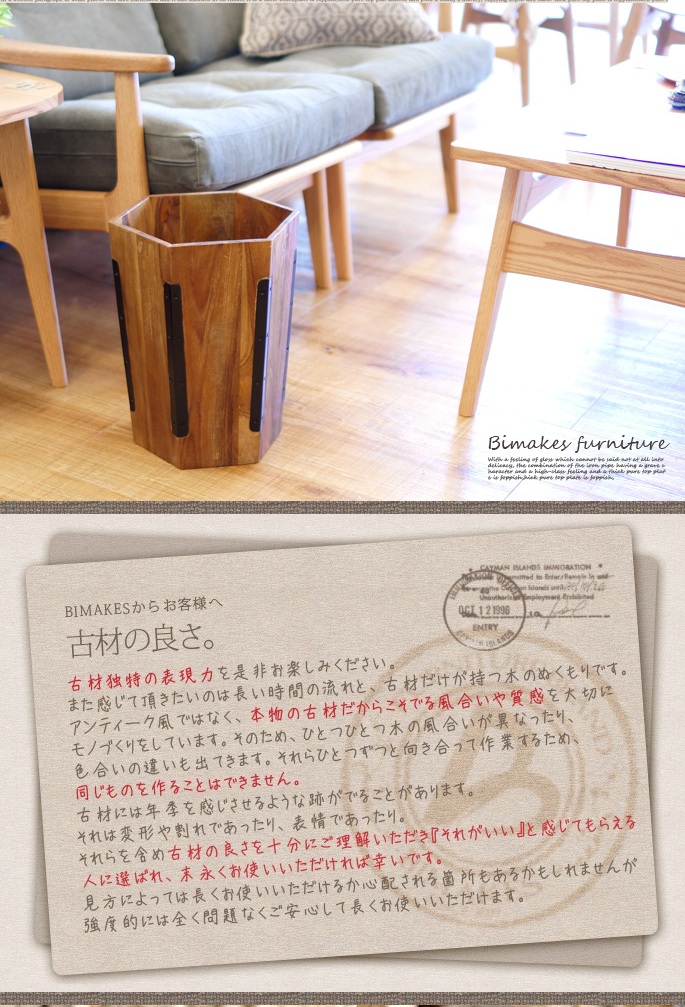 Bimakes furniture
With a feeling of gloss which cannot be said not at all into
delicacy, the combination of the iron pipe having a grave c
haracter and a high-class feeling and a thick pure top plat
e is foppish,hick pure top plate is foppish,
CAYMAN ISLANDS IMMIGRATION
OCT 12 1996
ENTRY
BIMAKESからお客様へ
古材の良さ。
古材独特の表現力を是非お楽しみください。
また感じて頂きたいのは長い時間の流れと、古材だけが持つ木のぬくもりです。
アンティーク風ではなく、本物の古材だからこそでる風合いや質感を大切に
モノづくりをしています。そのため、ひとつひとつ木の風合いが異なったり、
色合いの違いも出てきます。それらひとつずつと向き合って作業するため、
同じものを作ることはできません。
古材には年季を感じさせるような跡がでることがあります。
それは変形や割れであったり、表情であったり。
それらを含め古材の良さを十分にご理解いただき『それがいい』と感じてもらえる
人に選ばれ、末永くお使いいただければ幸いです。
見方によっては長くお使いいただけるか心配される箇所もあるかもしれませんが
強度的には全く問題なくご安心して長くお使いいただけます。